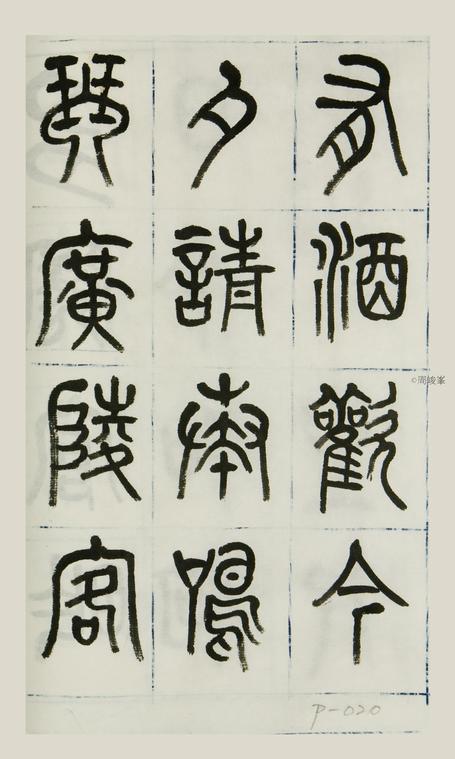 有酒歡今
夕請奏鳴
琴廣陵客
P-020